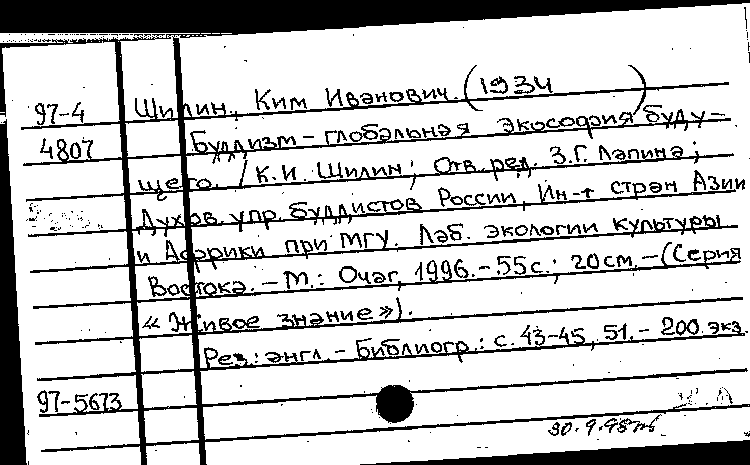 97-4 Шилин, Ким Иванович. (1934 )
4807 Буддизм – глобальная экософия буду-
щего. / К.И. Шилин; Отв. ред. З.Г. Лапина;
Духов. упр. буддистов России, Ин-т стран Азии
и Африки при МГУ. Лаб. экологии культуры
Востока. – М.: Очаг, 1996. – 55с.; 20см. – (Серия
«Живое знание»).
Рез.: англ. – Библиогр.: с. 43-45, 51. – 200 экз.
97-5673
30.9.98